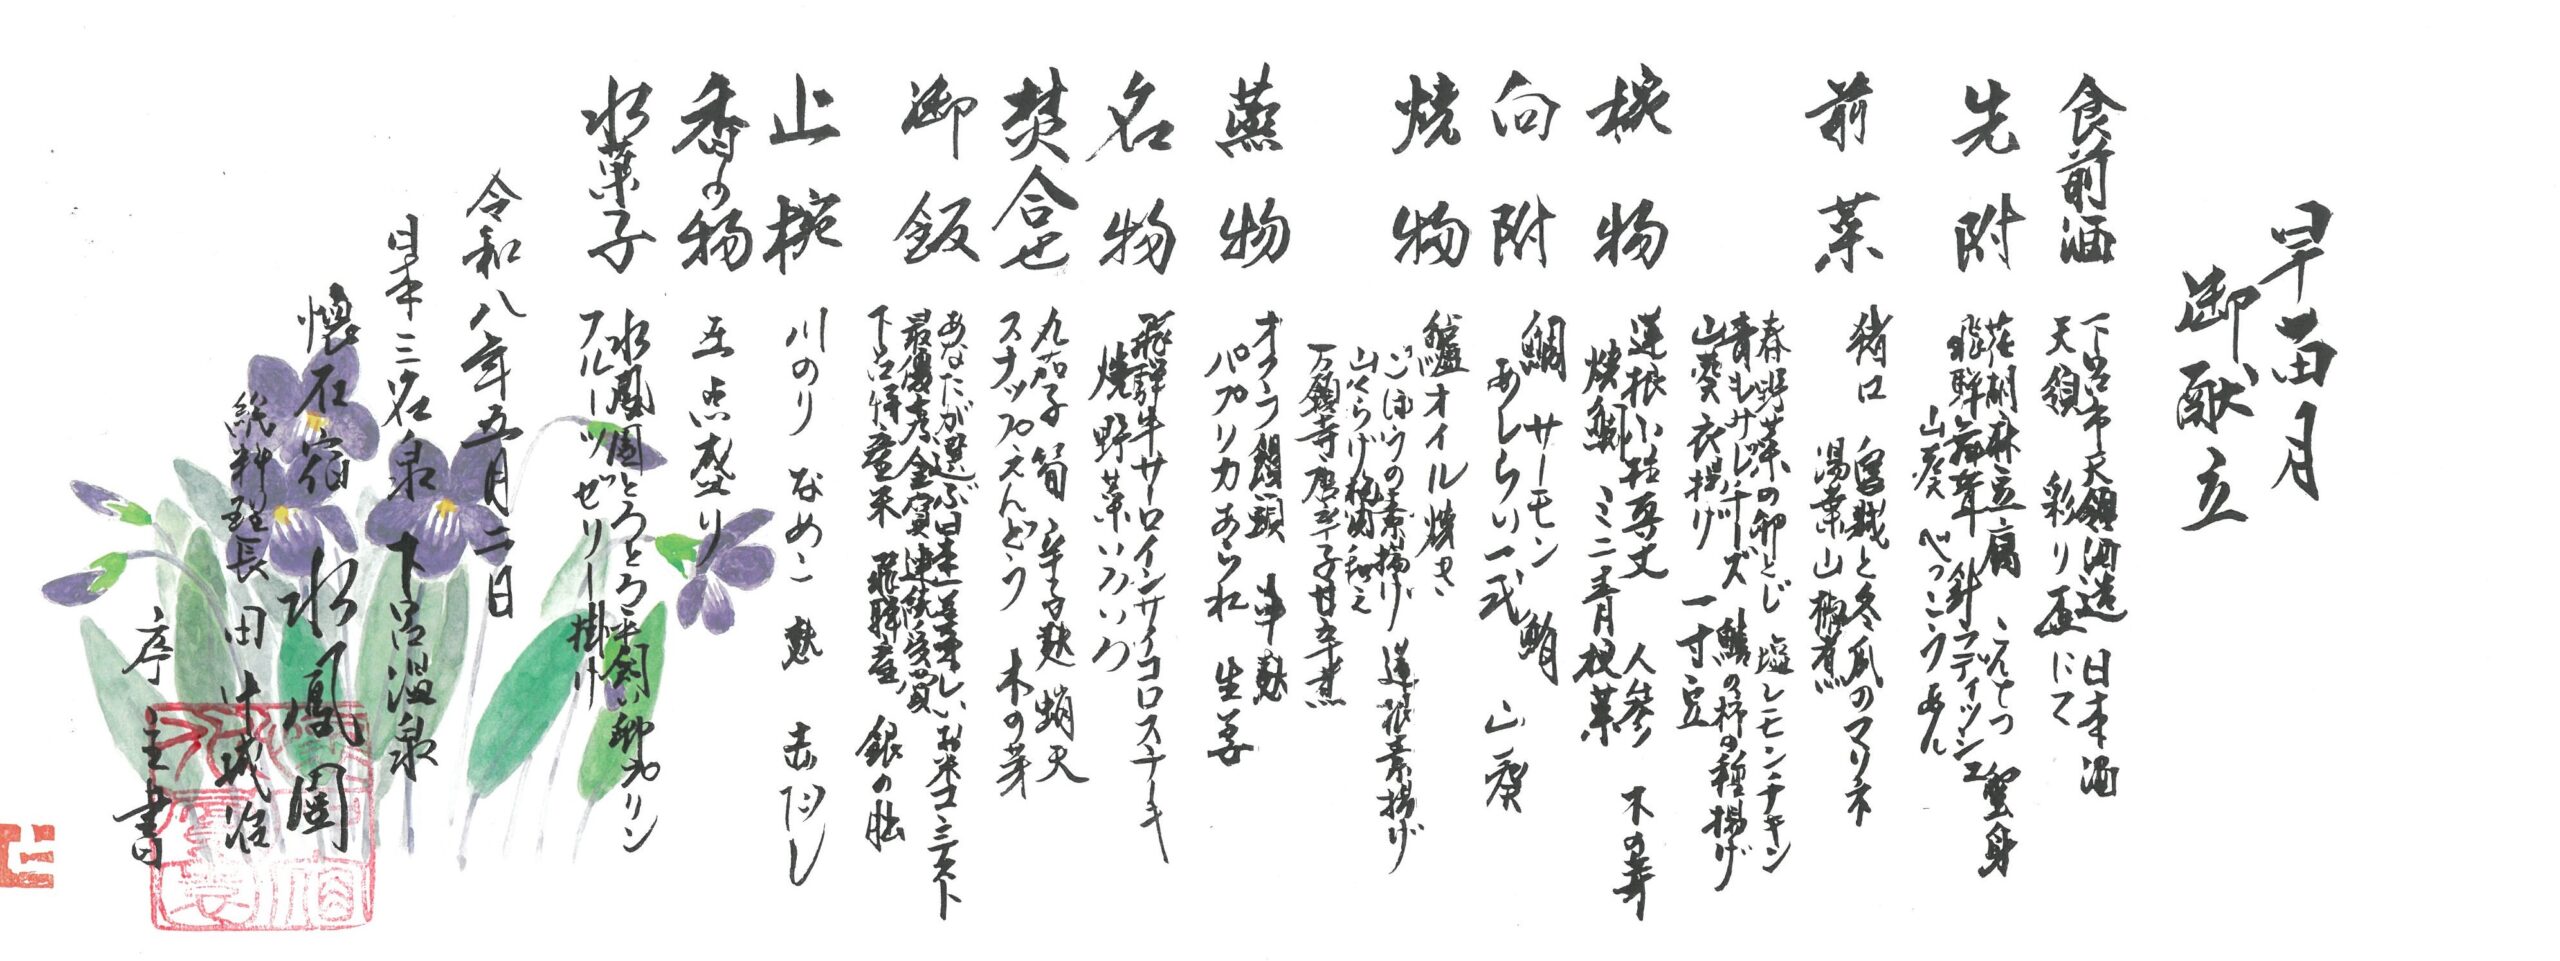 早苗月
御献立
食前酒
下呂市天領酒造 日本酒
天領 彩り 盃にて
先附
花胡麻豆腐 こんてつ 蟹身
飛騨舞茸 針ラディッシュ
山葵 べっこうあん
前菜
猪口 宮城と冬瓜のマリネ
湯葉山椒煮
春野菜の卵とじ 塩レモンチキン
青しそチーズ 鱚の柿の種揚げ
山葵衣揚げ 一寸豆
椀物
蓮根小柱真丈 人参 木の芽
焼鯛 ミニ青月根菜
向附
鯛 サーモン 鮪 山葵
あしらい一式
焼物
鱸オイル焼き
ごぼうの素揚げ 蓮根素揚げ
山くらげ梅肉和え
万願寺唐辛子甘辛煮
蒸物
オクラ饅頭 車麩
パプリカあられ 生姜
名物
飛騨牛サーロインサイコロステーキ
焼野菜いろいろ
焚合せ
丸茄子 筍 辛子麩 蛸天
スナップえんどう 木の芽
御飯
あなたが選ぶ日本一美味しいお米コンテスト
最優秀金賞連続受賞
下呂特産米 飛騨産 銀の朏
止椀
川のり なめこ 麩 赤だし
香の物
五点盛り
水菓子
水鳳園とろとろ平飼い卵プリン
フルーツゼリー掛け
令和八年五月二日
日本三名泉 下呂温泉
懐石宿 水鳳園
総料理長 田中誠治